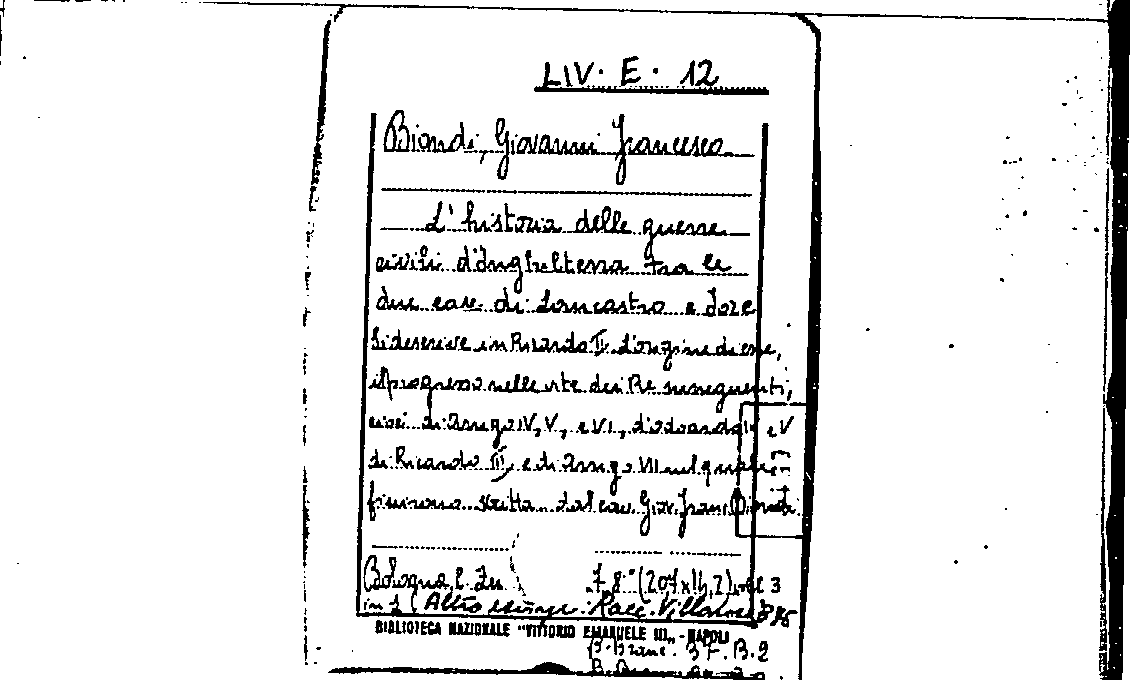 LIV. E. 12
Biondi, Giovanni Francesco
L'historia delle guerre
civili d'Inghilterra tra le
due case di Lancastro e Iorc
Si descrive in Ricardo II. l'origine di esse,
il progresso nelle vite dei Re susseguenti,
cioè di Arrigo IV, V, e VI, d'Odoardo IV e V
di Ricardo III, e di Arrigo VII nel quale
finirono. Scritta dal cav. Giov. Franc. Biondi.
Bologna,
8° (207x
vol 3
in 1 (Altro esempl. Racc. Villarosa
BIBLIOTECA NAZIONALE "VITTORIO EMANUELE III" - NAPOLI
B. Branc. 3 F. B. 2